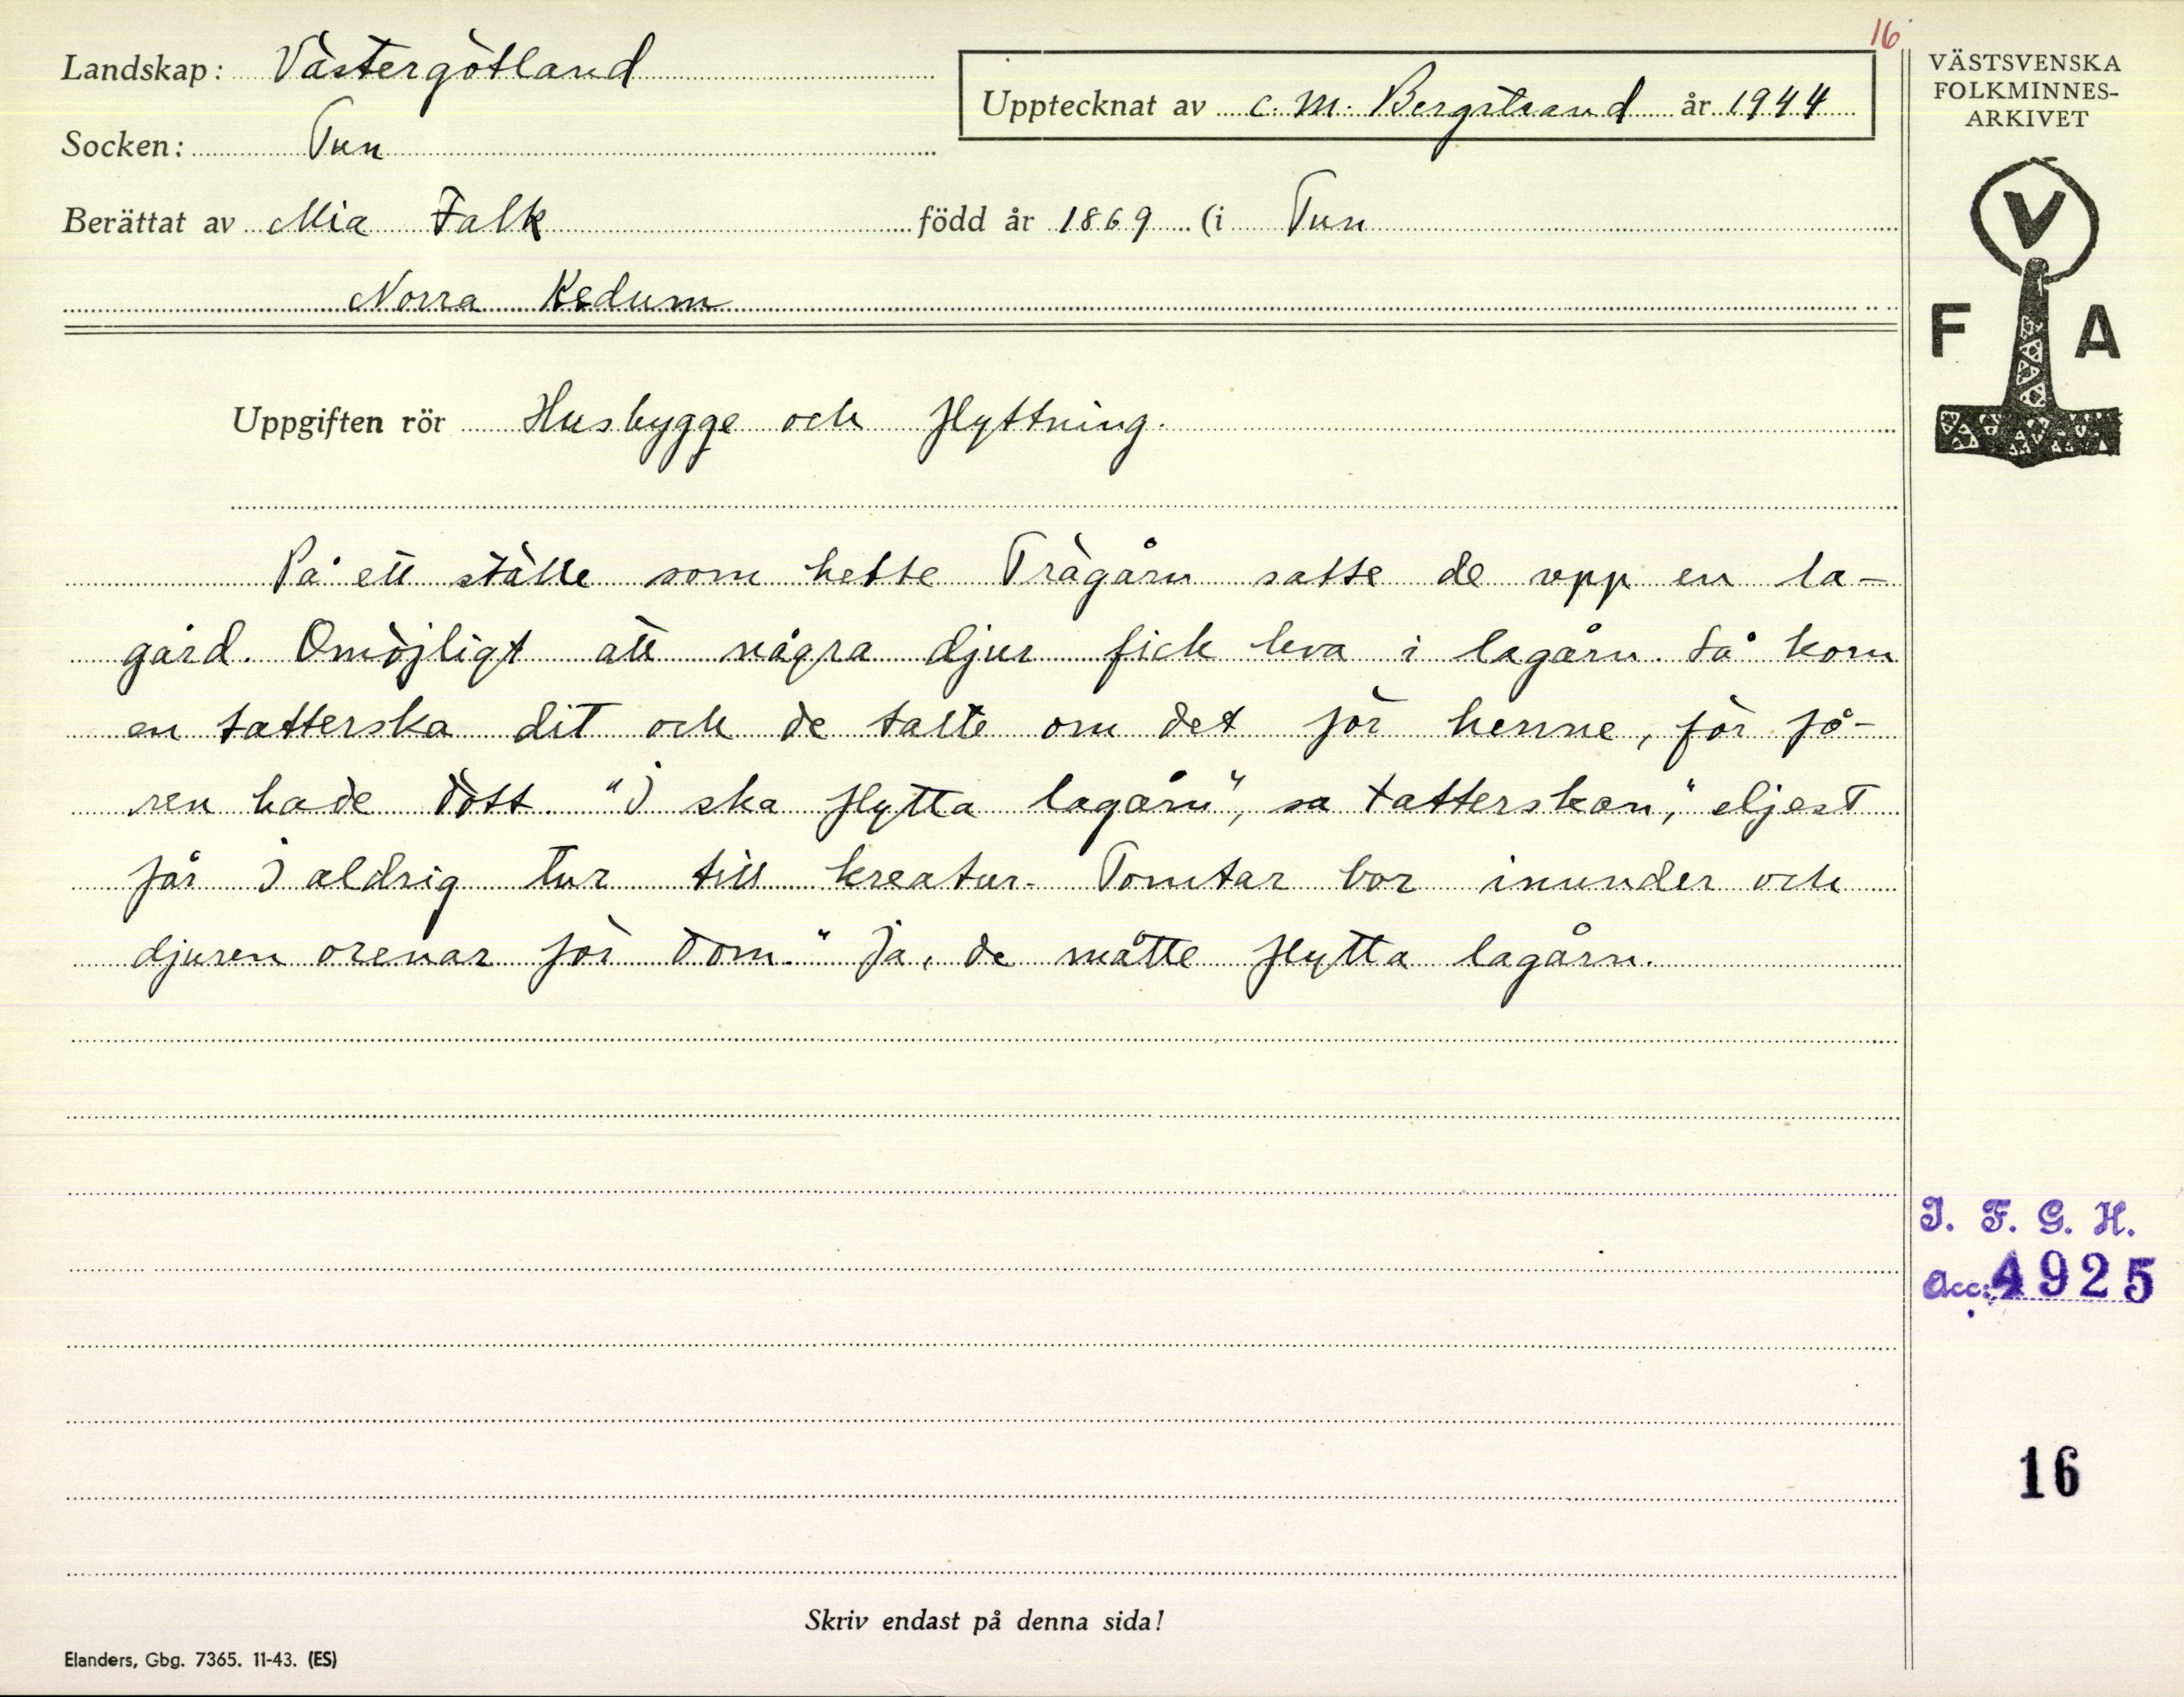 16
Landskap: Västergötland
Upptecknat av C. M. Bergstrand år 1944
VÄSTSVENSKA
FOLKMINNES-
ARKIVET
Socken: Tun
Berättat av Mia Falk född år 1869 (i Tun
Norra Kedum
V
F A
Uppgiften rör Husbygge och flyttning.
På ett ställe som hette Trägårn satte de opp en la-
gård. Omöjligt att några djur fick leva i lagårn. Så kom
en tatterska dit och de talte om det för henne, för få-
ren hade dött. "I ska flytta lagårn", sa tatterskan, "eljest
får I aldrig tur till kreatur. Tomtar bor inunder och
djuren orenar för dom." Ja, de måtte flytta lagårn.
I. F. G. H.
Acc: 4925
16
Skriv endast på denna sida!
Elanders, Gbg. 7365. 11-43. (ES)